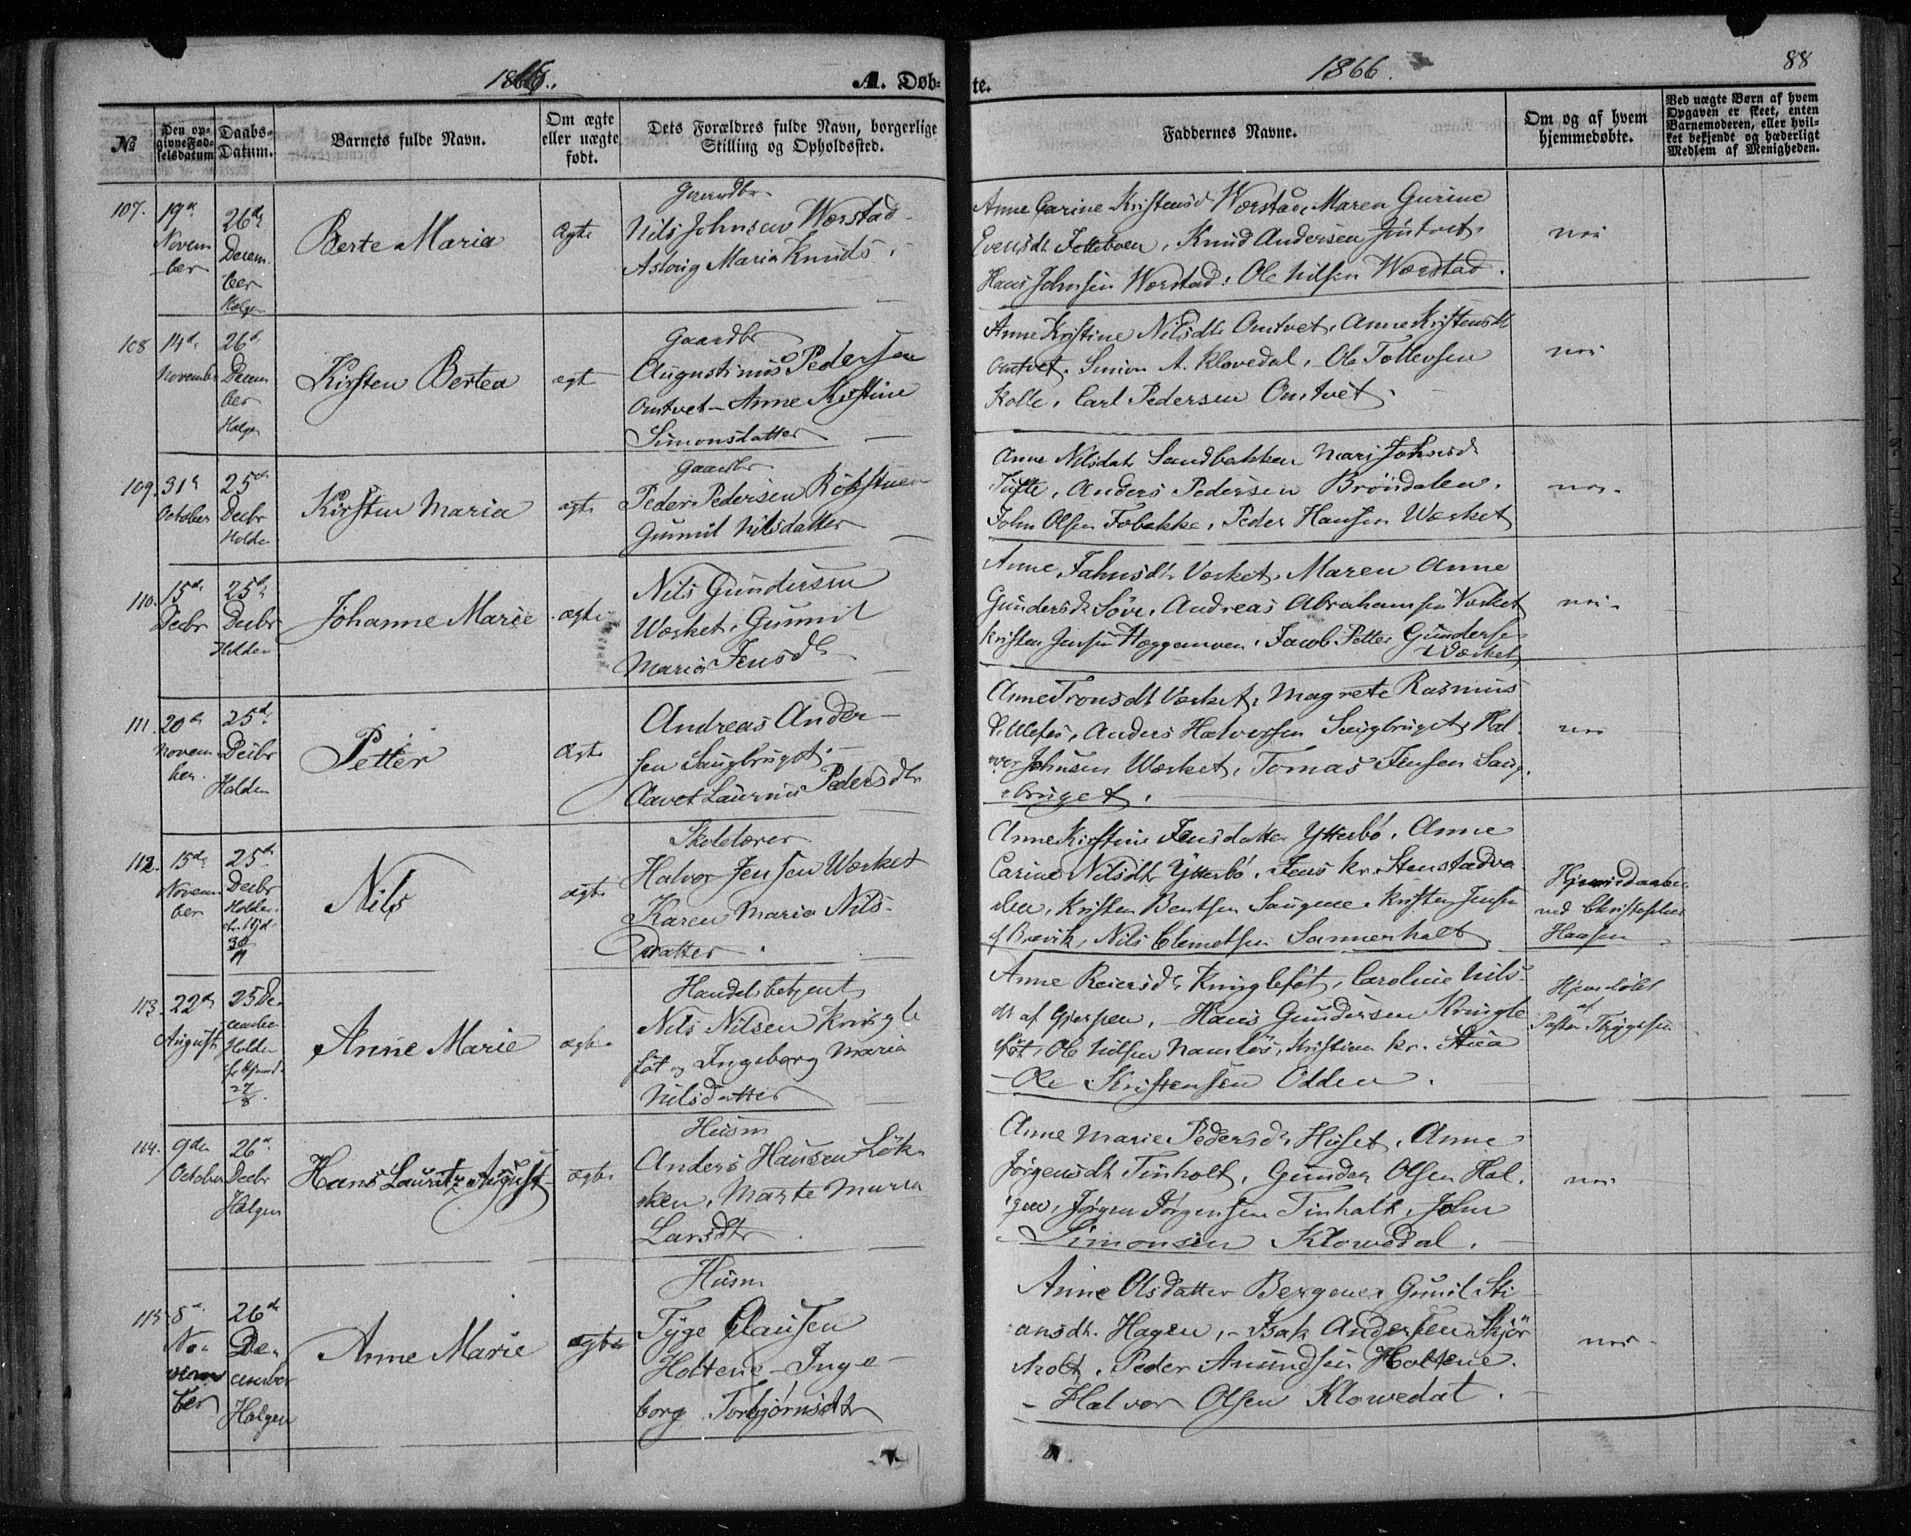 1866.
A. Døb-
te.
1866.
88
No
Den op-
givne Fød-
selsdatum
Daabs-
Datum.
Barnets fulde Navn.
Om ægte
eller uægte
født.
Dets Forældres fulde Navn, borgerlige
Stilling og Opholdssted.
Faddernes Navne.
Om og af hvem
hjemmedøbte.
Ved uægte Børn af hvem
Opgaven er skeet, enten
Barnemoderen, eller hvil-
ket bekjendt og hæderligt
Medlem af Menigheden.
107.
19de
Novem
ber
26de
Decem
ber
Helgen
Berte Maria
ægte
Gaardbr
Nils Johnsen Wærstad
Aslaug Maria Knuds.
Anne Carine Kristensd Wærstad, Maren Gurine
Evensdt, Knud Andersen
Hans Johnsen Wærstad, Ole Nilsen Wærstad.
nei
108
14de
November
26de
Decem
ber
Helgen
Kirsten Bertea
ægte
Gaardbr
Augustinus Pedersen
Omtvet - Anne Kirstine
Simonsdatter
Anne Kirstine Nilsdt Omtvet, Anne Kristensdt
Omtvet. Simon A. Klovedal, Ole Tollevsen
Kolle, Carl Pedersen Omtvet.
nei
109.
31te
October
25de
Decbr
Holden
Kirsten Maria
ægte
Gaardbr
Peder Pedersen
Gunnil Nilsdatter
Anne Nilsdatt Sandbakken Mari Johnsd
Tufte, Anders Pedersen Brøndalen,
John Olsen Tobakke, Peder Hansen Værket
nei.
110.
15de
Decbr
25de
Decbr
Holden
Johanne Marie
ægte
Nils Gundersen
Værket, Gunnil
Maria Jensdt
Anne Jahnsdt Værket, Maren Anne
Gundersdt Søve, Andreas Abrahamsen Værket
Kristen Jensen Heggemoen, Jacob Petter Gunderse
Værket
nei.
111.
20de
Novem
ber.
25de
Decbr
Holden
Petter
ægte
Andreas Ander-
sen Saugbruget.
Laurine Pedersdt
Anne Tronsdt Værket, Magrete Rasmus
d. Ulefos, Anders Halvorsen Saugbruget, Hal
vor Johnsen Værket, Tomas Jensen Saug
bruget.
nei
112.
15de
Novem
ber
25de
Decbr
Holden
30
11
Nils
ægte
Skolelærer
Halvor Jensen Værket
Karen Maria Nils-
Datter
Anne Kirstine Jensdatter Ytterbø, Anne
Carine Nilsdt Ytterbø, Jens Kr. Stenstadva
len, Kristen Bentsen Saugene, Kristen Jensen
af Brevik, Nils Clemetsen Sannerholt
Hjemmedaaben
ved Christopher
Hansen
113.
22de
August
25 De-
cember
Holden
27
8
Anne Marie
ægte
Handelsbetjent
Nils Nilsen Kringle
føt og Ingeborg Maria
Nilsdatter
Anne Reiersdt, Kringlefôt, Caroline Nils-
dt af Gjerpen, - Hans Gundersen Kringle
føt, Ole Nilsen Namløs, Kristian Kr. Stua
- Ole Kristensen Odden.
Hjemdøbt
af
Pastor Thygesen
114.
9de
October
26de
Decbr
Helgen
Hans Lauritz August
ægte
Husm
Anders Hansen Løk-
ken, Marte Maria
Larsdtr
Anne Marie Pedersdt Huset, Anne
Jørgensdt Tinholt, Gunder Olsen Hel-
gen, Jørgen Jørgensen Tinholt, John
Simonsen Klovedal.
nei
115
5te
No-
vem
ber
26de
De-
cember
Helgen
Anne Marie
ægte
Husm
Tyge Clausen
Holtene - Inge-
borg Torbjørnsdt
Anne Olsdatter Bergene, Gunil Sti-
ansdt. Hagen, - Isak Andersen Skjør
holt, Peder Amundsen Holtene.
- Halvor Olsen Klovedal.
nei